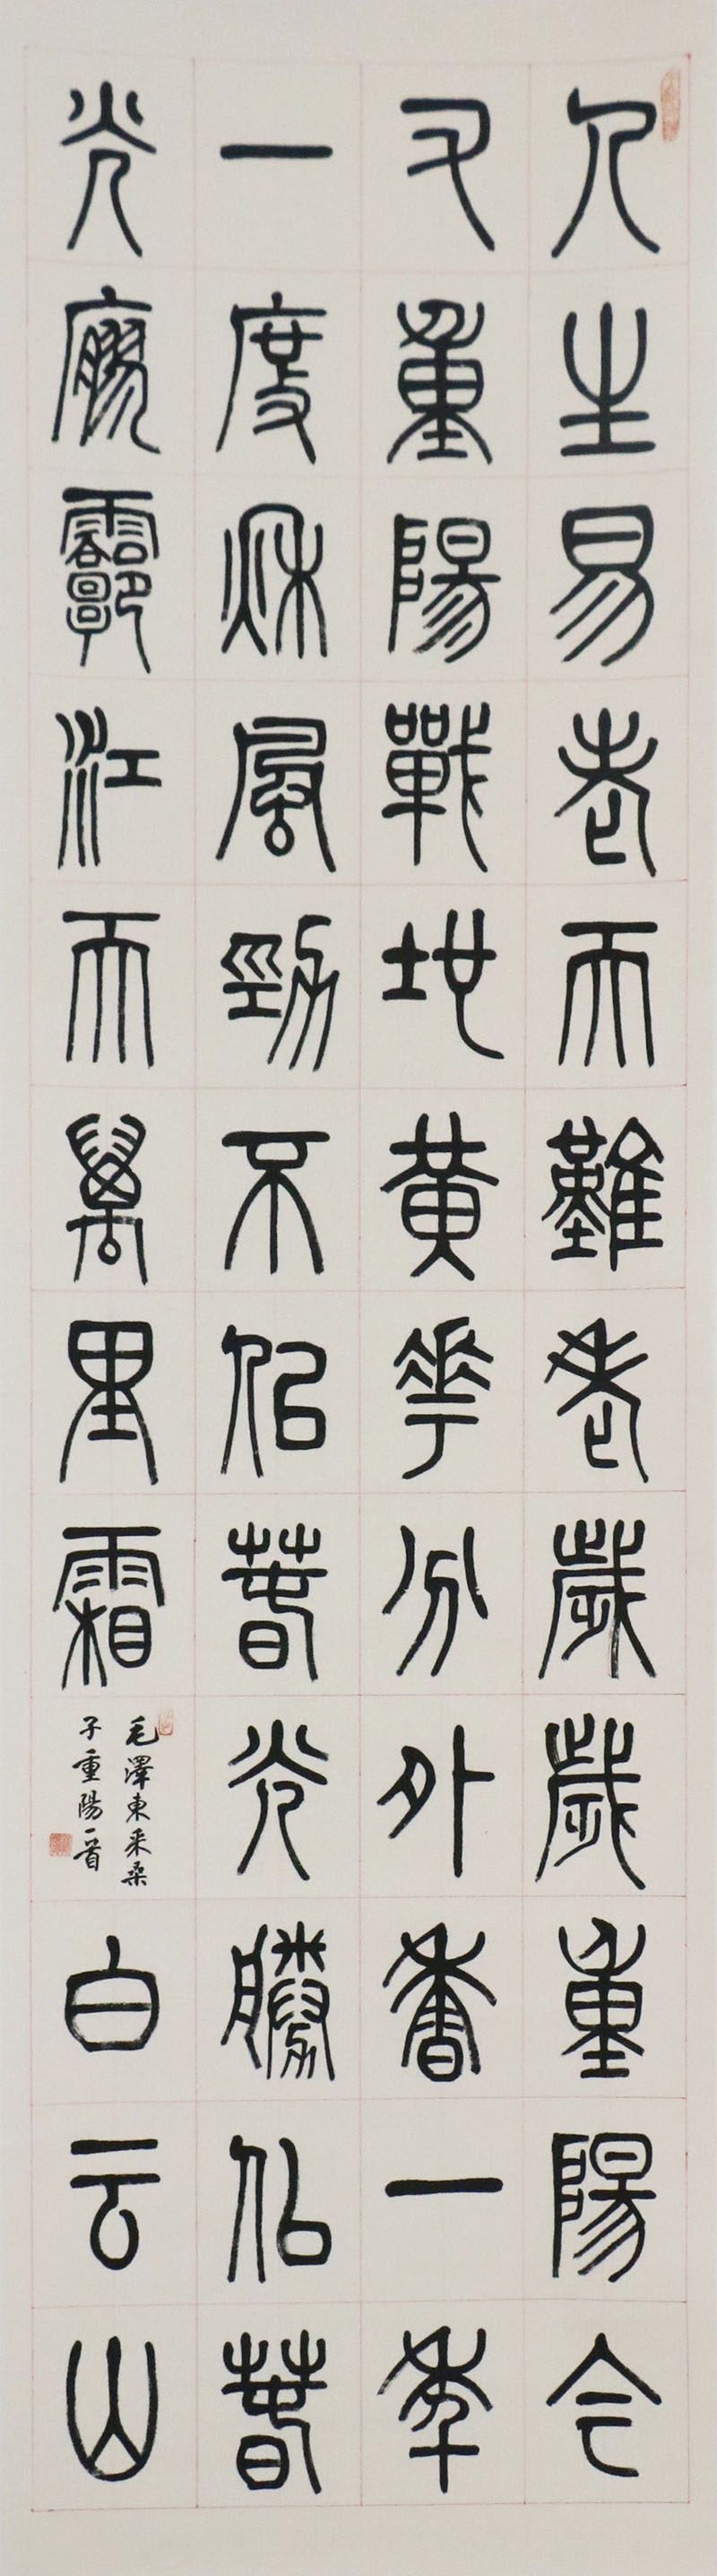 人生易老天難老歲歲重陽今
又重陽戰地黃花分外香一年
一度秋風勁不似春光勝似春
光廖霩江天萬里霜
毛澤東采桑
子重陽一首
白云山